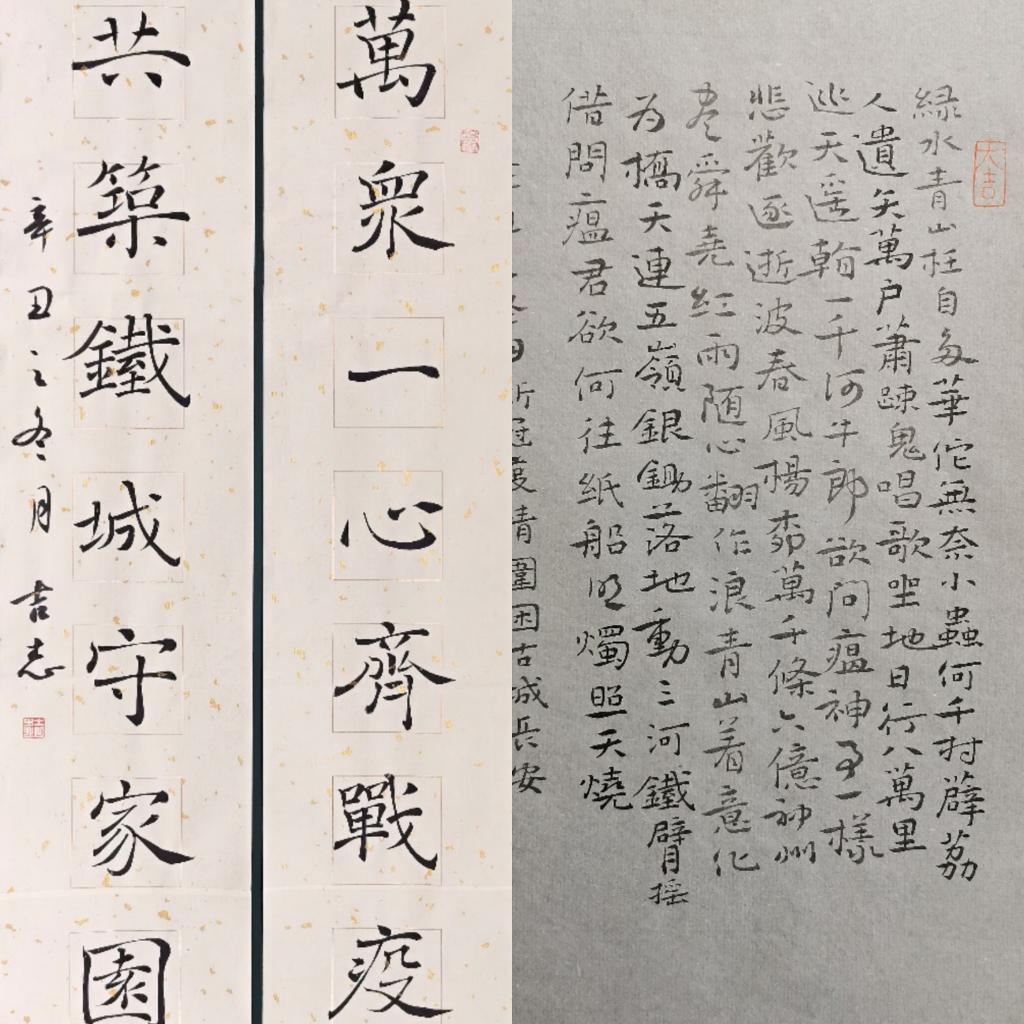 萬衆一心齊戰疫
共築鐵城守家園
辛丑之冬月 吉志
大吉
緑水青山枉自多華佗無奈小蟲何千村薜荔
人遺矢萬户蕭踈鬼唱歌坐地日行八萬里
巡天遥翰一千河牛郎欲问瘟神事一樣
悲歡逐逝波春風楊柳萬千條六億神州
尽舜堯红雨随心翻作浪青山着意化
为橋天連五嶺銀鋤落地動三河鐵臂摇
借問瘟君欲何往纸船明燭照天燒
冠疫情圍困古城长安